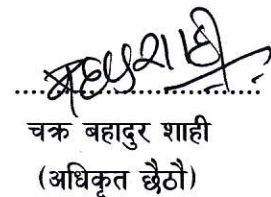 चक्र बहादुर शाही
(अधिकृत छैठौ)